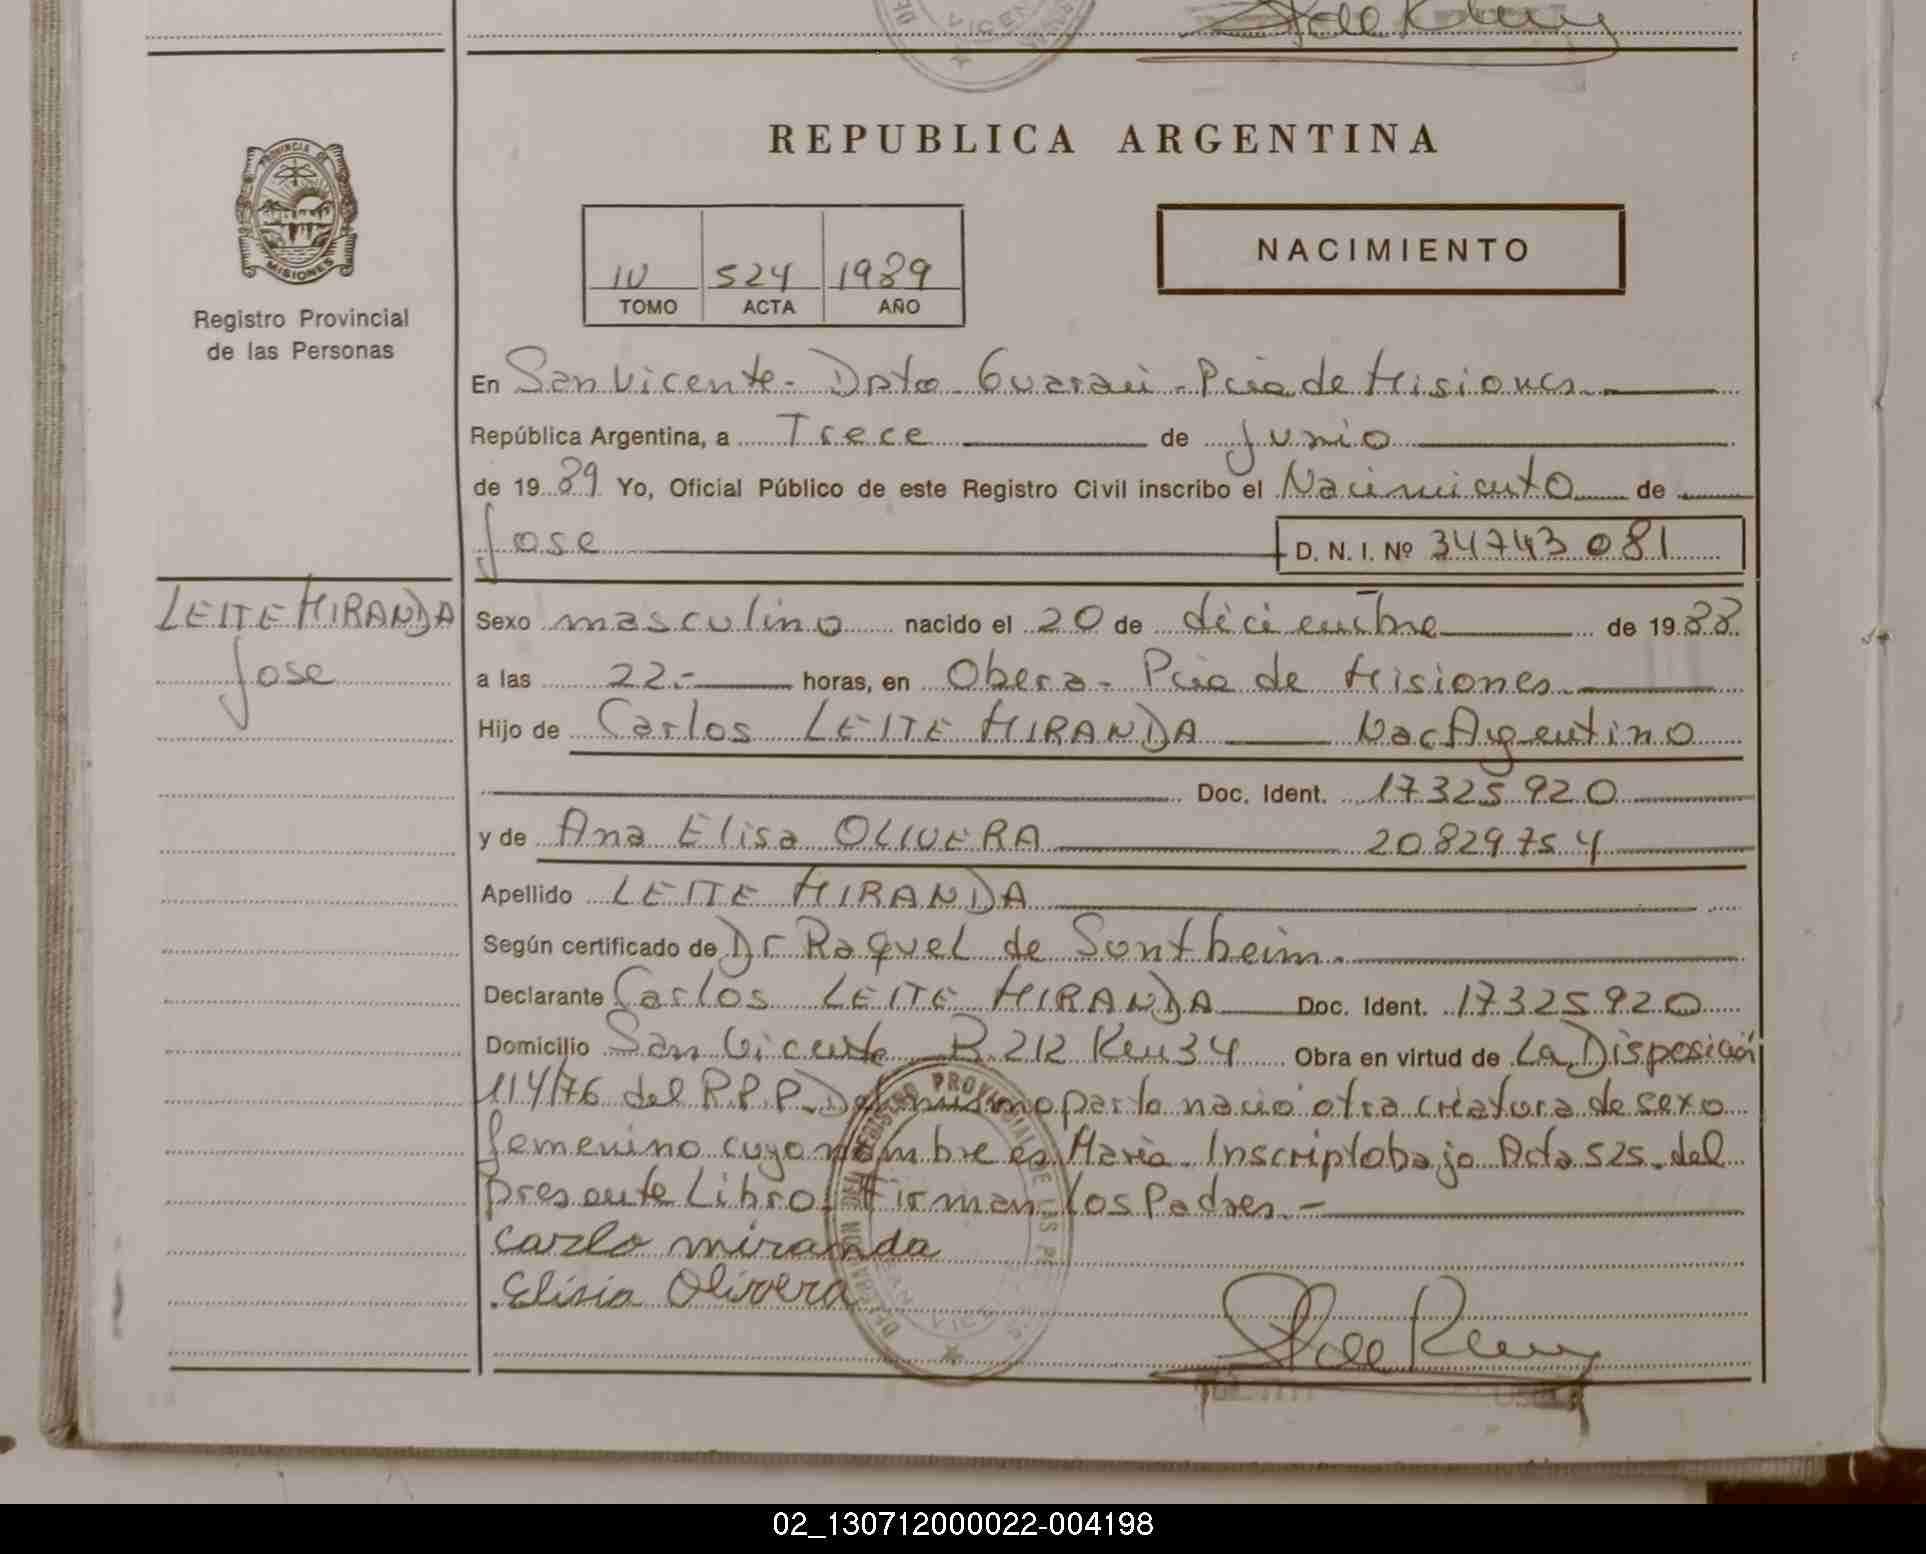 REPUBLICA ARGENTINA
PROVINCIA DE
MISIONES
Registro Provincial
de las Personas
IV 524 1989
TOMO ACTA AÑO
NACIMIENTO
En San Vicente - Dpto Guarani - Pcia de Misiones
República Argentina, a Trece de Junio
de 19 89 Yo, Oficial Público de este Registro Civil inscribo el Nacimiento de
Jose D. N. I. Nº 34743 081
LEITE MIRANDA
Jose
Sexo masculino nacido el 20 de diciembre de 19 88
a las 22.- horas, en Obera - Pcia de Misiones
Hijo de Carlos LEITE MIRANDA Nac Argentino
Doc. Ident. 17325920
y de Ana Elisa OLIVERA 20829754
Apellido LEITE MIRANDA
Según certificado de Dr Raquel de Sontheim.
Declarante Carlos LEITE MIRANDA Doc. Ident. 17325920
Domicilio San Vicente R.212 Km 34 Obra en virtud de La Disposición
114/76 del R.P.P. Del mismo parto nació otra criatura de sexo
femenino cuyo nombre es Maria. Inscripto bajo Acta 525. del
presente Libro. Firman los Padres.-
carlo miranda
Elisia Olivera
02_130712000022-004198